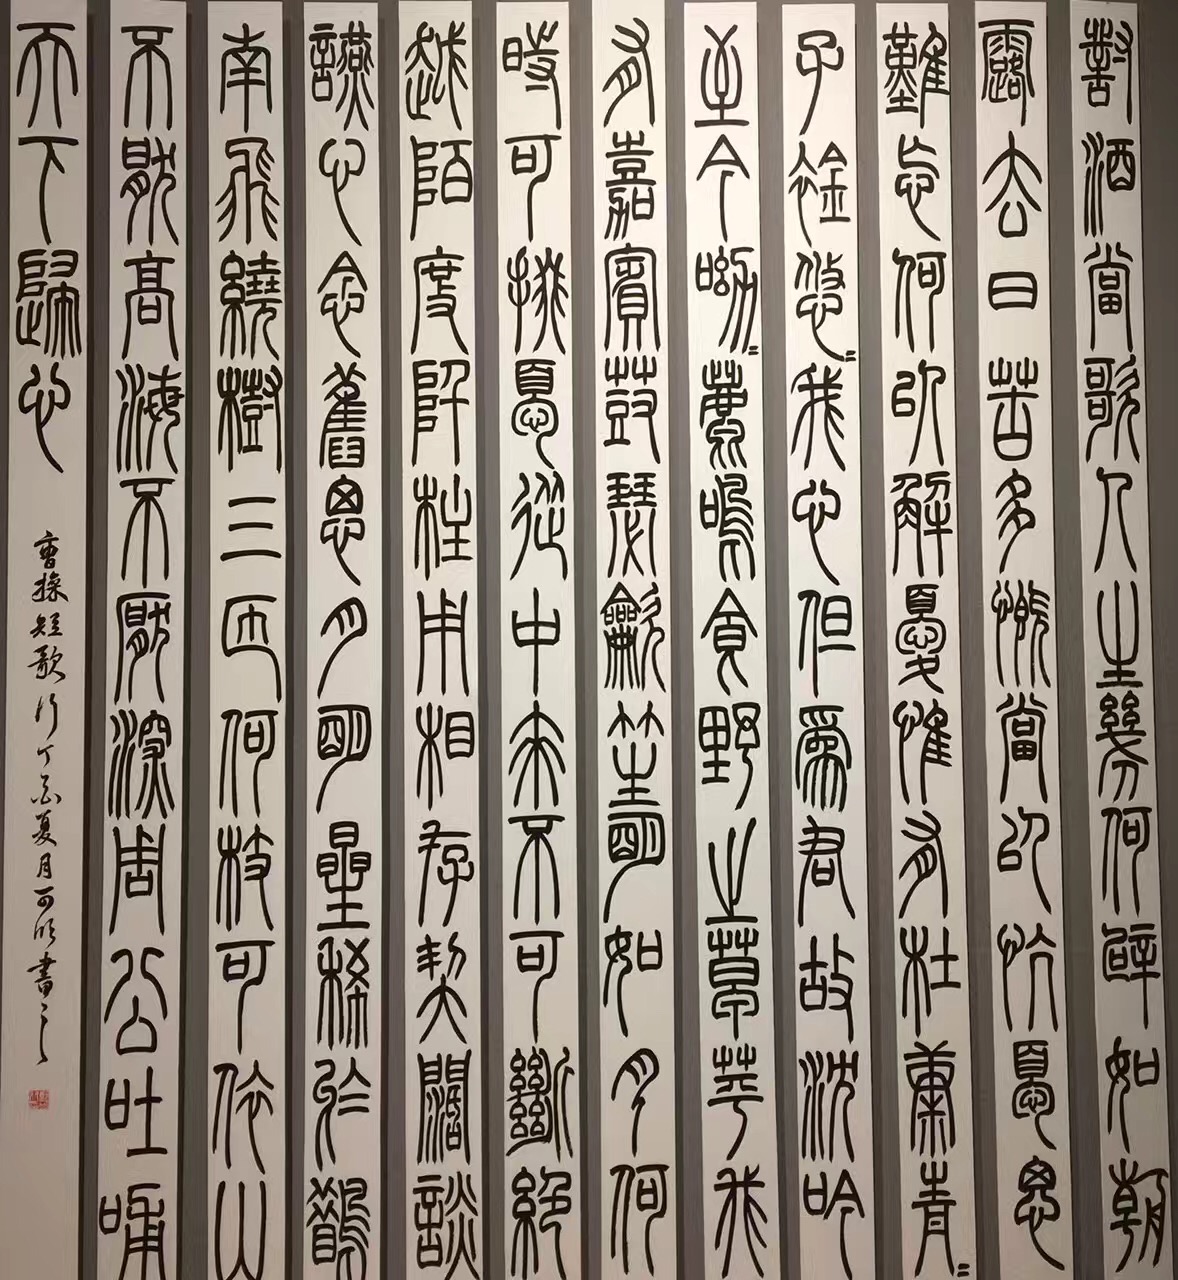 對酒當歌人生幾何譬如朝
露去日苦多慨當以忼憂思
難忘何以解憂惟有杜康青=
子衿悠=我心但為君故沈吟
至今呦=鹿鳴食野之草苹我
有嘉賓鼓瑟龡笙明如月何
時可掇憂從中來不可斷絕
越陌度阡枉用相存契闊談
讌心念舊恩月明星稀烏鵲
南飛繞樹三匝何枝可依山
不厭高海不厭深周公吐哺
天下歸心
曹操短歌行丁酉夏月書之